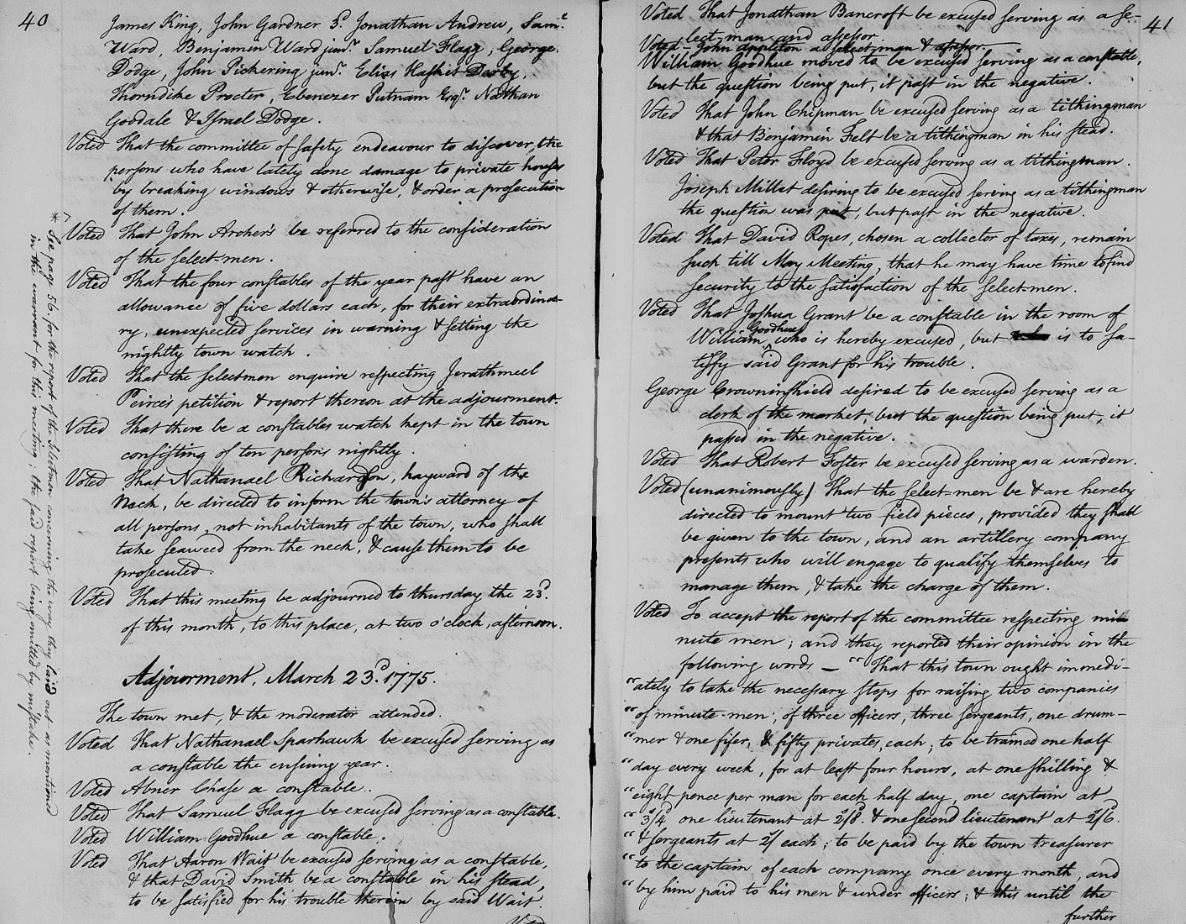 40
James King, John Gardner 3d. Jonathan Andrew, Saml.
Ward, Benjamin Ward junr. Samuel Flagg, George
Dodge, John Pickering junr. Elias Hasket Derby,
Thorndike Procter, Ebenezer Putnam Esqr. Nathan
Goodale & Israel Dodge.
Voted That the committee of safety endeavour to discover the
persons who have lately done damage to private houses
by breaking windows & otherwise, & order a prosecution
of them.
Voted That John Archer's be referred to the consideration
of the select-men.
Voted That the four constables of the year past have an
allowance of five dollars each, for their extraordina-
ry, unexpected services in warning & setting the
nightly town watch.
Voted That the selectmen enquire respecting Jerathmeel
Peirce's petition & report thereon at the adjourment.
Voted That there be a constables watch kept in the town
consisting of ten persons nightly.
Voted That Nathanael Richardson, hayward of the
Neck, be directed to inform the town's attorney of
all persons, not inhabitants of the town, who shall
take seaweed from the neck, & cause them to be
prosecuted.
Voted That this meeting be adjourned to thursday the 23d.
of this month, to this place, at two o'clock, afternoon.
Adjourment, March 23d. 1775.
The town met, & the moderator attended.
Voted That Nathanael Sparhawk be excused serving as
a constable the ensuing year.
Voted Abner Chase a constable.
Voted That Samuel Flagg be excused serving as a constable.
Voted William Goodhue a constable.
Voted That Aaron Wait be excused serving as a constable,
& that David Smith be a constable in his stead,
to be satisfied for his trouble therein by said Wait.
* See page 56 for the report of the selectmen concerning the way they laid out as mentioned
in the warrant for this meeting; the said report being omitted by mistake.
41
Voted That Jonathan Bancroft be excused serving as a se-
lect-man and assessor.
Voted - John appleton a select-man & assessor.
William Goodhue moved to be excused serving as a constable,
but the question being put, it past in the negative.
Voted That John Chipman be excused serving as a tithingman
& that Benjamin Felt be a tithingman in his stead.
Voted That Peter Floyd be excused serving as a tithingman.
Joseph Millet desiring to be excused serving as a tithingman
the question was put, but past in the negative.
Voted That David Ropes, chosen a collector of taxes, remain
such till May Meeting, that he may have time to find
security to the satisfaction of the select-men.
Voted That Joshua Grant be a constable in the room of
William Goodhue, who is hereby excused, but is to sa-
tisfy said Grant for his trouble.
George Crowninshield desired to be excused serving as a
clerk of the market, but the question being put, it
passed in the negative.
Voted That Robert Foster be excused serving as a warden.
Voted (unanimously) That the select-men be & are hereby
directed to mount two field pieces, provided they shall
be given to the town, and an artillery company
presents who will engage to qualify themselves to
manage them, & take the charge of them.
Voted To accept the report of the committee respecting mi-
nute men; and they reported their opinion in the
following words — "That this town ought immedi-
"ately to take the necessary steps for raising two companies
"of minute-men, of three officers, three sergeants, one drum-
"mer & one fifer, & fifty privates, each; to be trained one half
"day every week, for at least four hours, at one shilling &
"eight pence per man for each half day, one captain at
"3/4 one lieutenant at 2/8 & one second lieutenant at 2/6.
"& sergeants at 2/ each; to be paid by the town treasurer
"to the captain of each company once every month, and
"by him paid to his men & under officers; & this until the
further